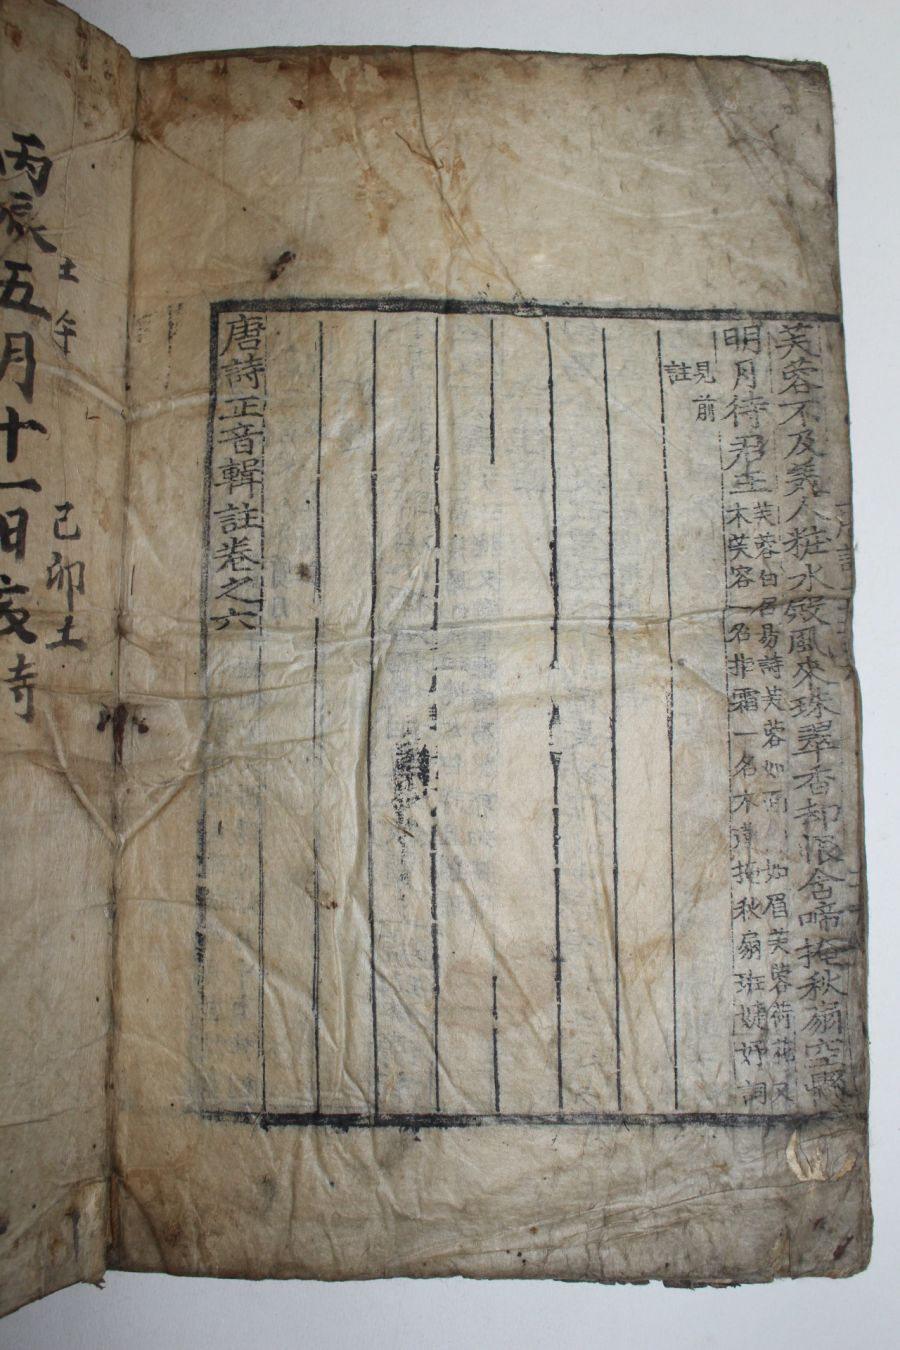 芙蓉不及美人粧水殿風來珠翠香却恨含啼掩秋扇空懸
明月待君王
芙蓉白居易詩芙蓉如面 如眉芙蓉荷花又
木芙容一名拒霜一名木蓮掩秋扇班婕妤詞
見前
註
唐詩正音輯註卷之六
己卯土
丙辰五月十一日